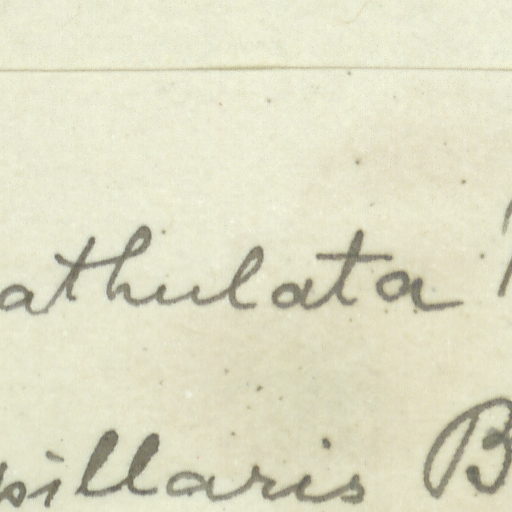 athulata
pillaris B